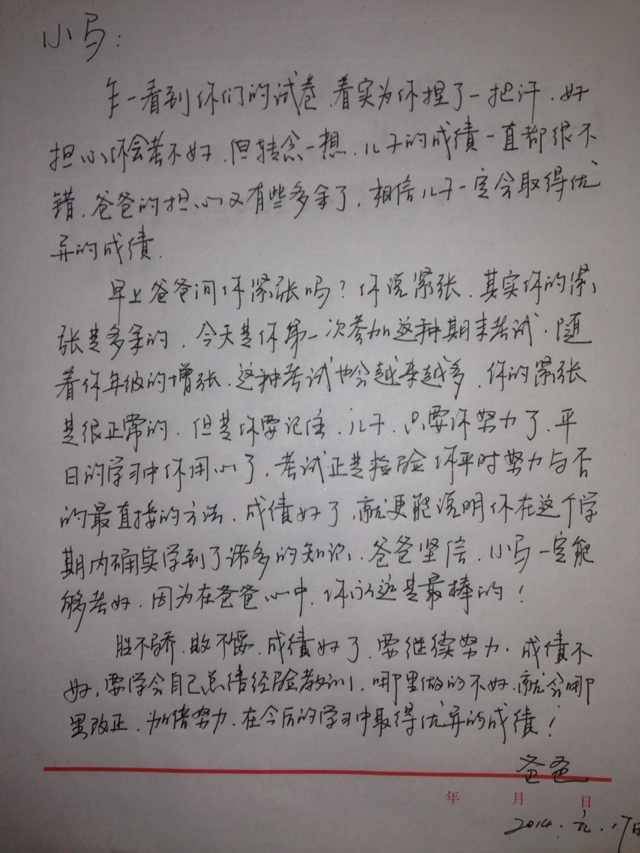 小马：
乍一看到你们的试卷，着实为你捏了一把汗，好
担心你会考不好，但转念一想，儿子的成绩一直都很不
错，爸爸的担心又有些多余了，相信儿子一定会取得优
异的成绩。
早上爸爸问你紧张吗？你说紧张，其实你的紧
张是多余的，今天是你第一次参加这种期末考试，随
着你年级的增张，这种考试也会越来越多，你的紧张
是很正常的，但是你要记住，儿子，只要你努力了，平
日的学习中你用心了，考试正是检验你平时努力与否
的最直接的方法，成绩好了，就更能说明你在这个学
期内确实学到了诸多的知识，爸爸坚信，小马一定能
够考好，因为在爸爸心中，你永远是最棒的！
胜不骄，败不馁，成绩好了，要继续努力，成绩不
好，要学会自己总结经验教训，哪里做的不好，就会哪
里改正，加倍努力，在今后的学习中取得优异的成绩！
爸爸
年 月 日
2014. 元. 17日